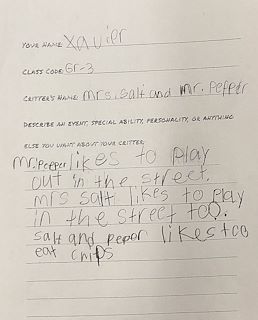 YOUR NAME: Xavier
CLASS CODE: Gr-3
CRITTER'S NAME: mrs. salt and mr. Pepper
DESCRIBE AN EVENT, SPECIAL ABILITY, PERSONALITY, OR ANYTHING
ELSE YOU WANT ABOUT YOUR CRITTER:
Mr. Pepper likes to Play
out in the street.
mrs salt likes to play
in the street too.
salt and peper likes to
eat chips